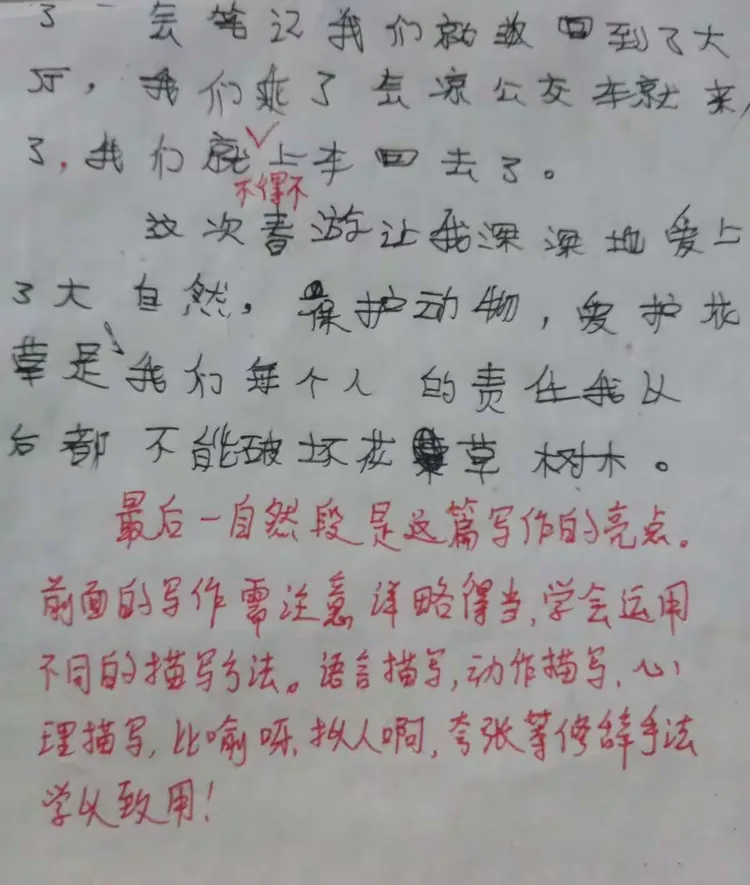 了一会笔记我们就
回到了大
厅，我们乘了会凉公交车就来
了，我们就上车回去了。
不得不
这次春游让我深深地爱上
了大自然，保护动物，爱护花
草是我们每个人的责任我以
后都不能破坏花草树木。
最后一自然段是这篇写作的亮点。
前面的写作需注意详略得当,学会运用
不同的描写方法。语言描写,动作描写,心
理描写,比喻呀,拟人啊,夸张等修辞手法
学以致用!